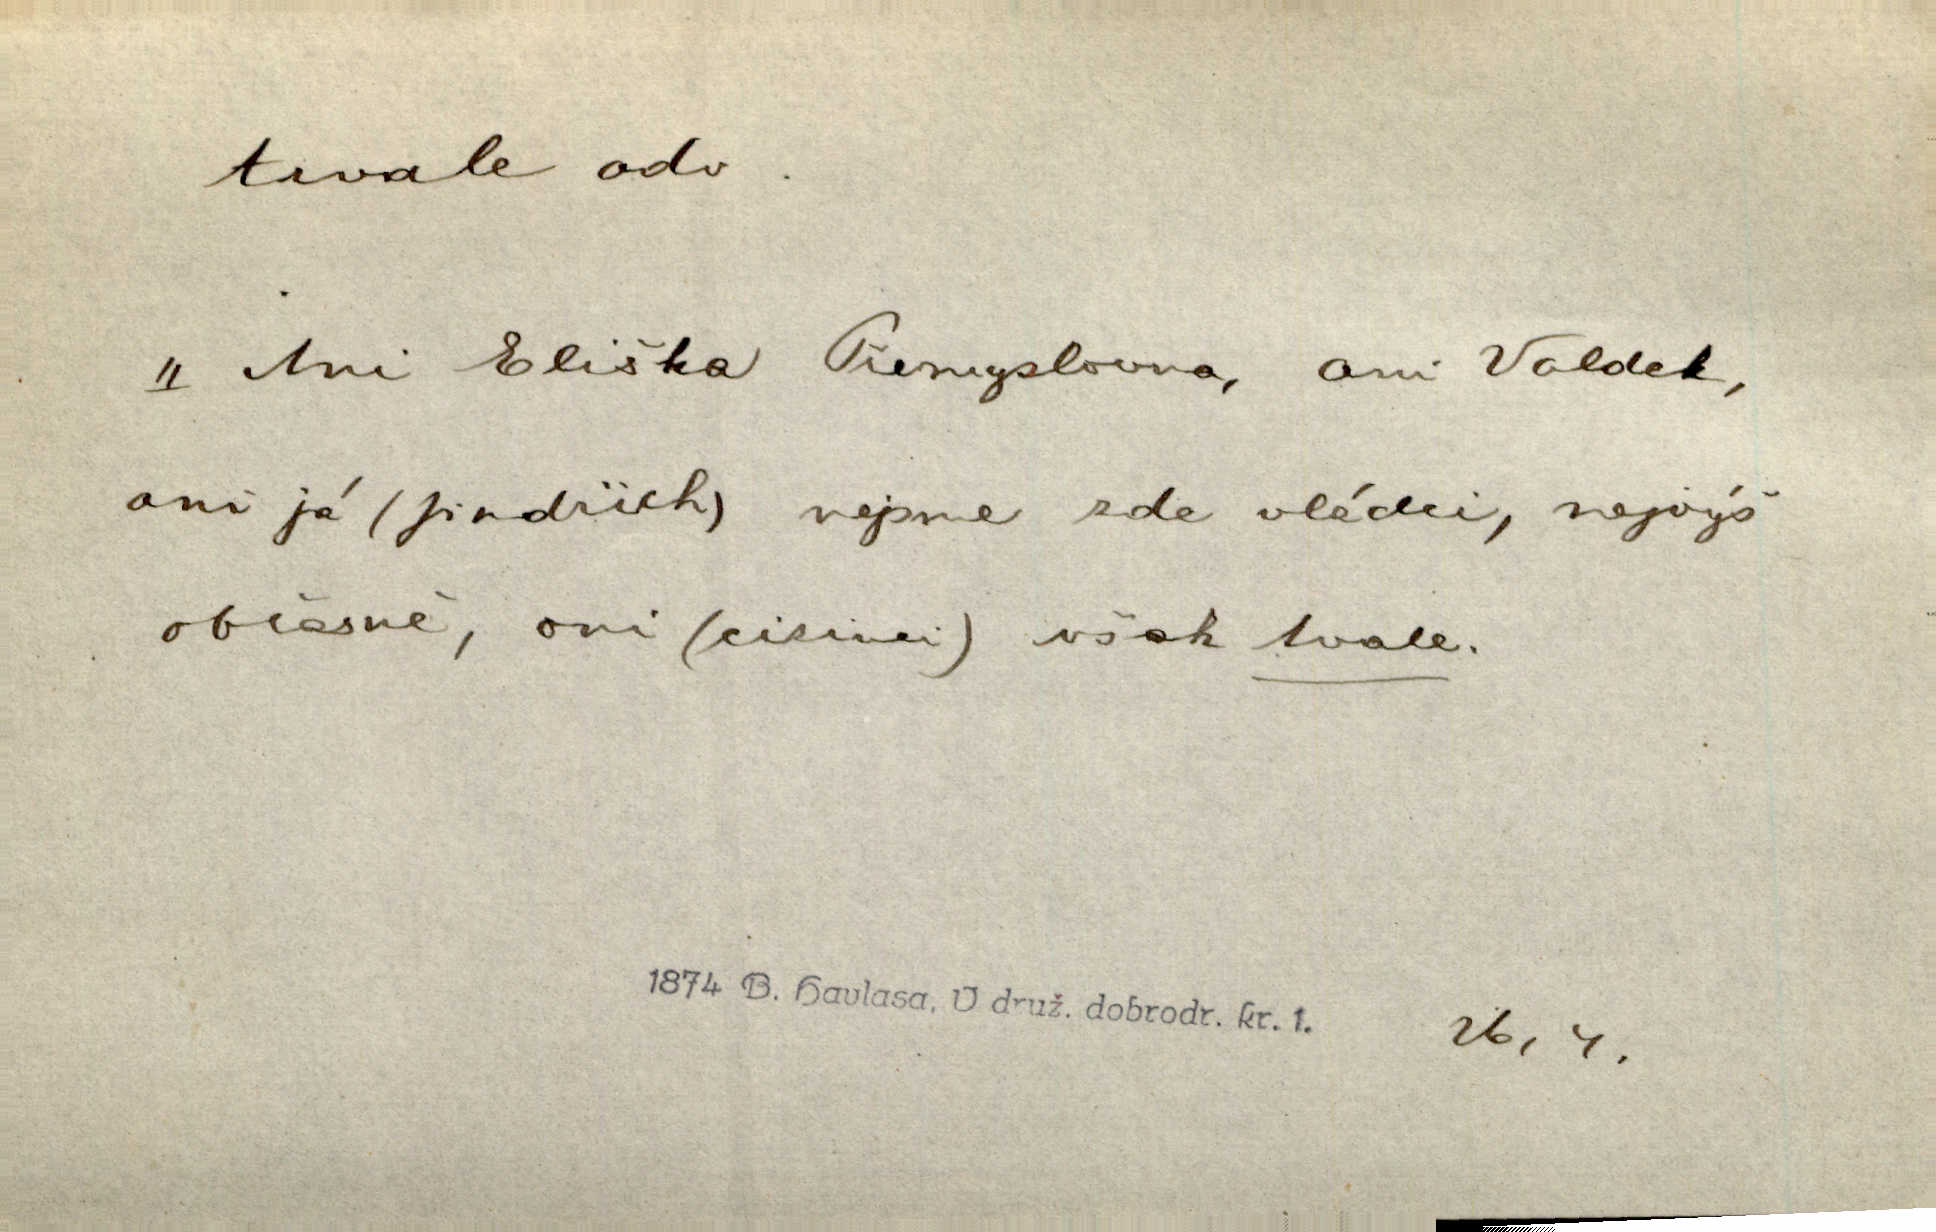 trvale adv.
„ Ani Eliška Přemyslovna, ani Valdek,
ani já (Jindřich) nejsme zde vládci, nejvýš
občasně, oni (cizinci) však trvale.
1874 B. Havlasa, V druž. dobrodr. kr. 1. 26, 4.